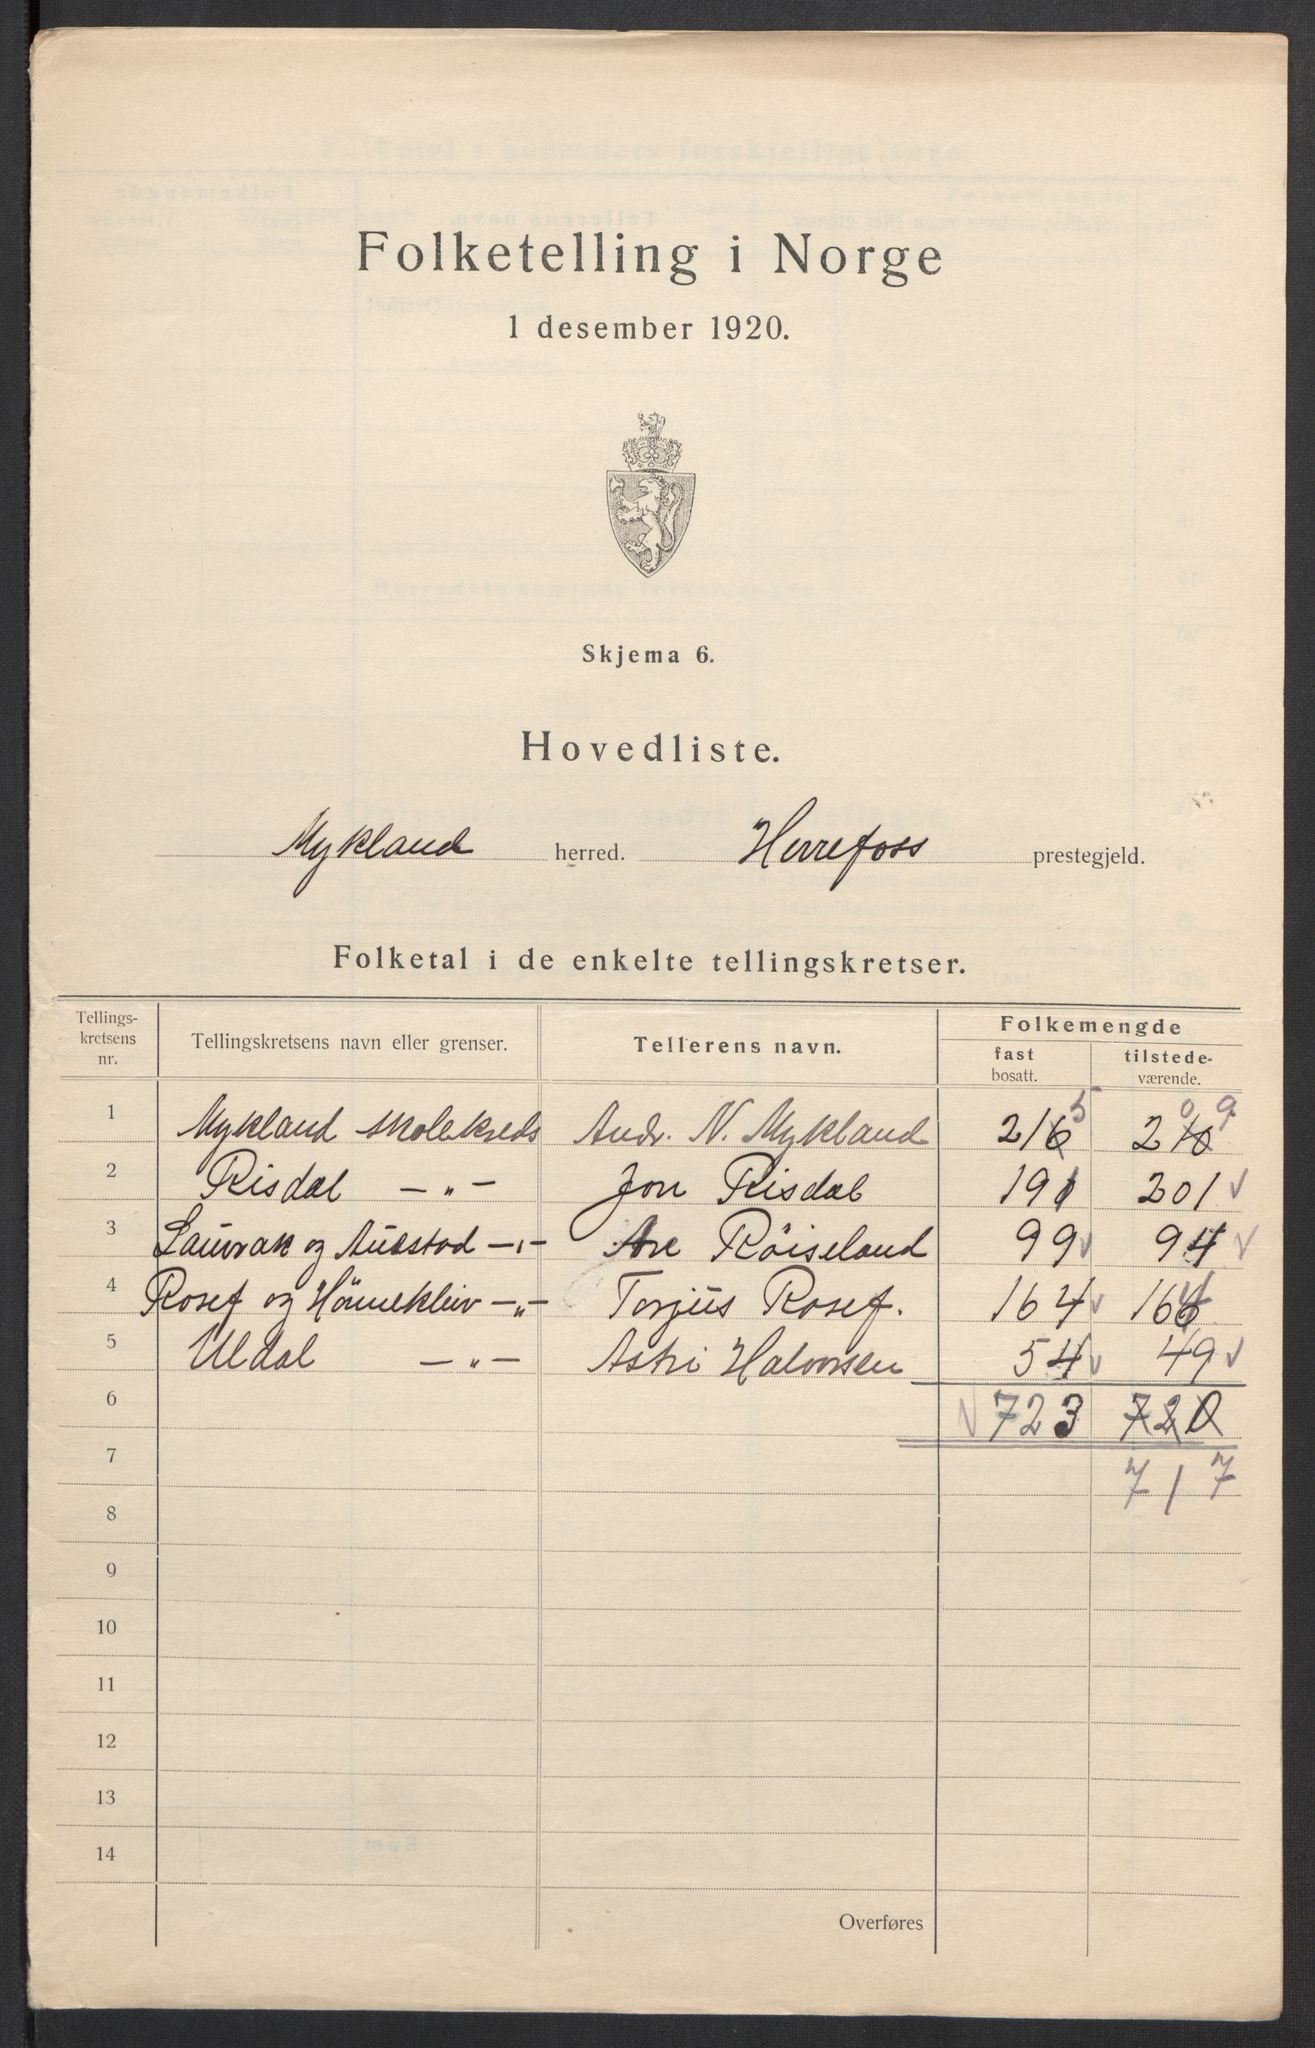 Folketelling i Norge
1 desember 1920.
Skjema 6.
Hovedliste.
Mykland herred. Herrefoss prestegjeld.
Folketal i de enkelte tellingskretser.
Tellings-kretsens nr. Tellingskretsens navn eller grenser. Tellerens navn. Folkemengde
fast bosatt. tilstede-værende.
1 Mykland skolekreds Andr. N. Mykland 2165 210 09
2 Risdal —„— Jon Risdal 191 201 √
3 Lauvrak og Austad —„— Are Röiseland 99 √ 94 √
4 Rosef og Hömekliv —„— Torjus Rosef. 164 √ 164
5 Uldal —„— Astri Halvorsen 54 √ 49 √
6 √ 723 720
7 717
8
9
10
11
12
13
14
Overføres